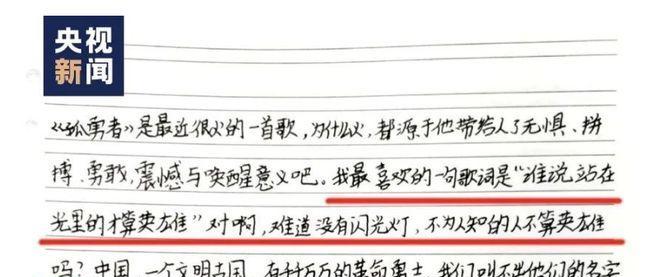 央视
新闻
《孤勇者》是最近很火的一首歌,为什么火,都源于他带给人了无惧、拼
搏、勇敢,震撼与唤醒意义吧。我最喜欢的一句歌词是“谁说站在
光里的才算英雄”对啊,难道没有闪光灯,不为人知的人不算英雄
吗?中国,一个文明古国,有千千万万的革命勇士,我们叫不出他们的名字